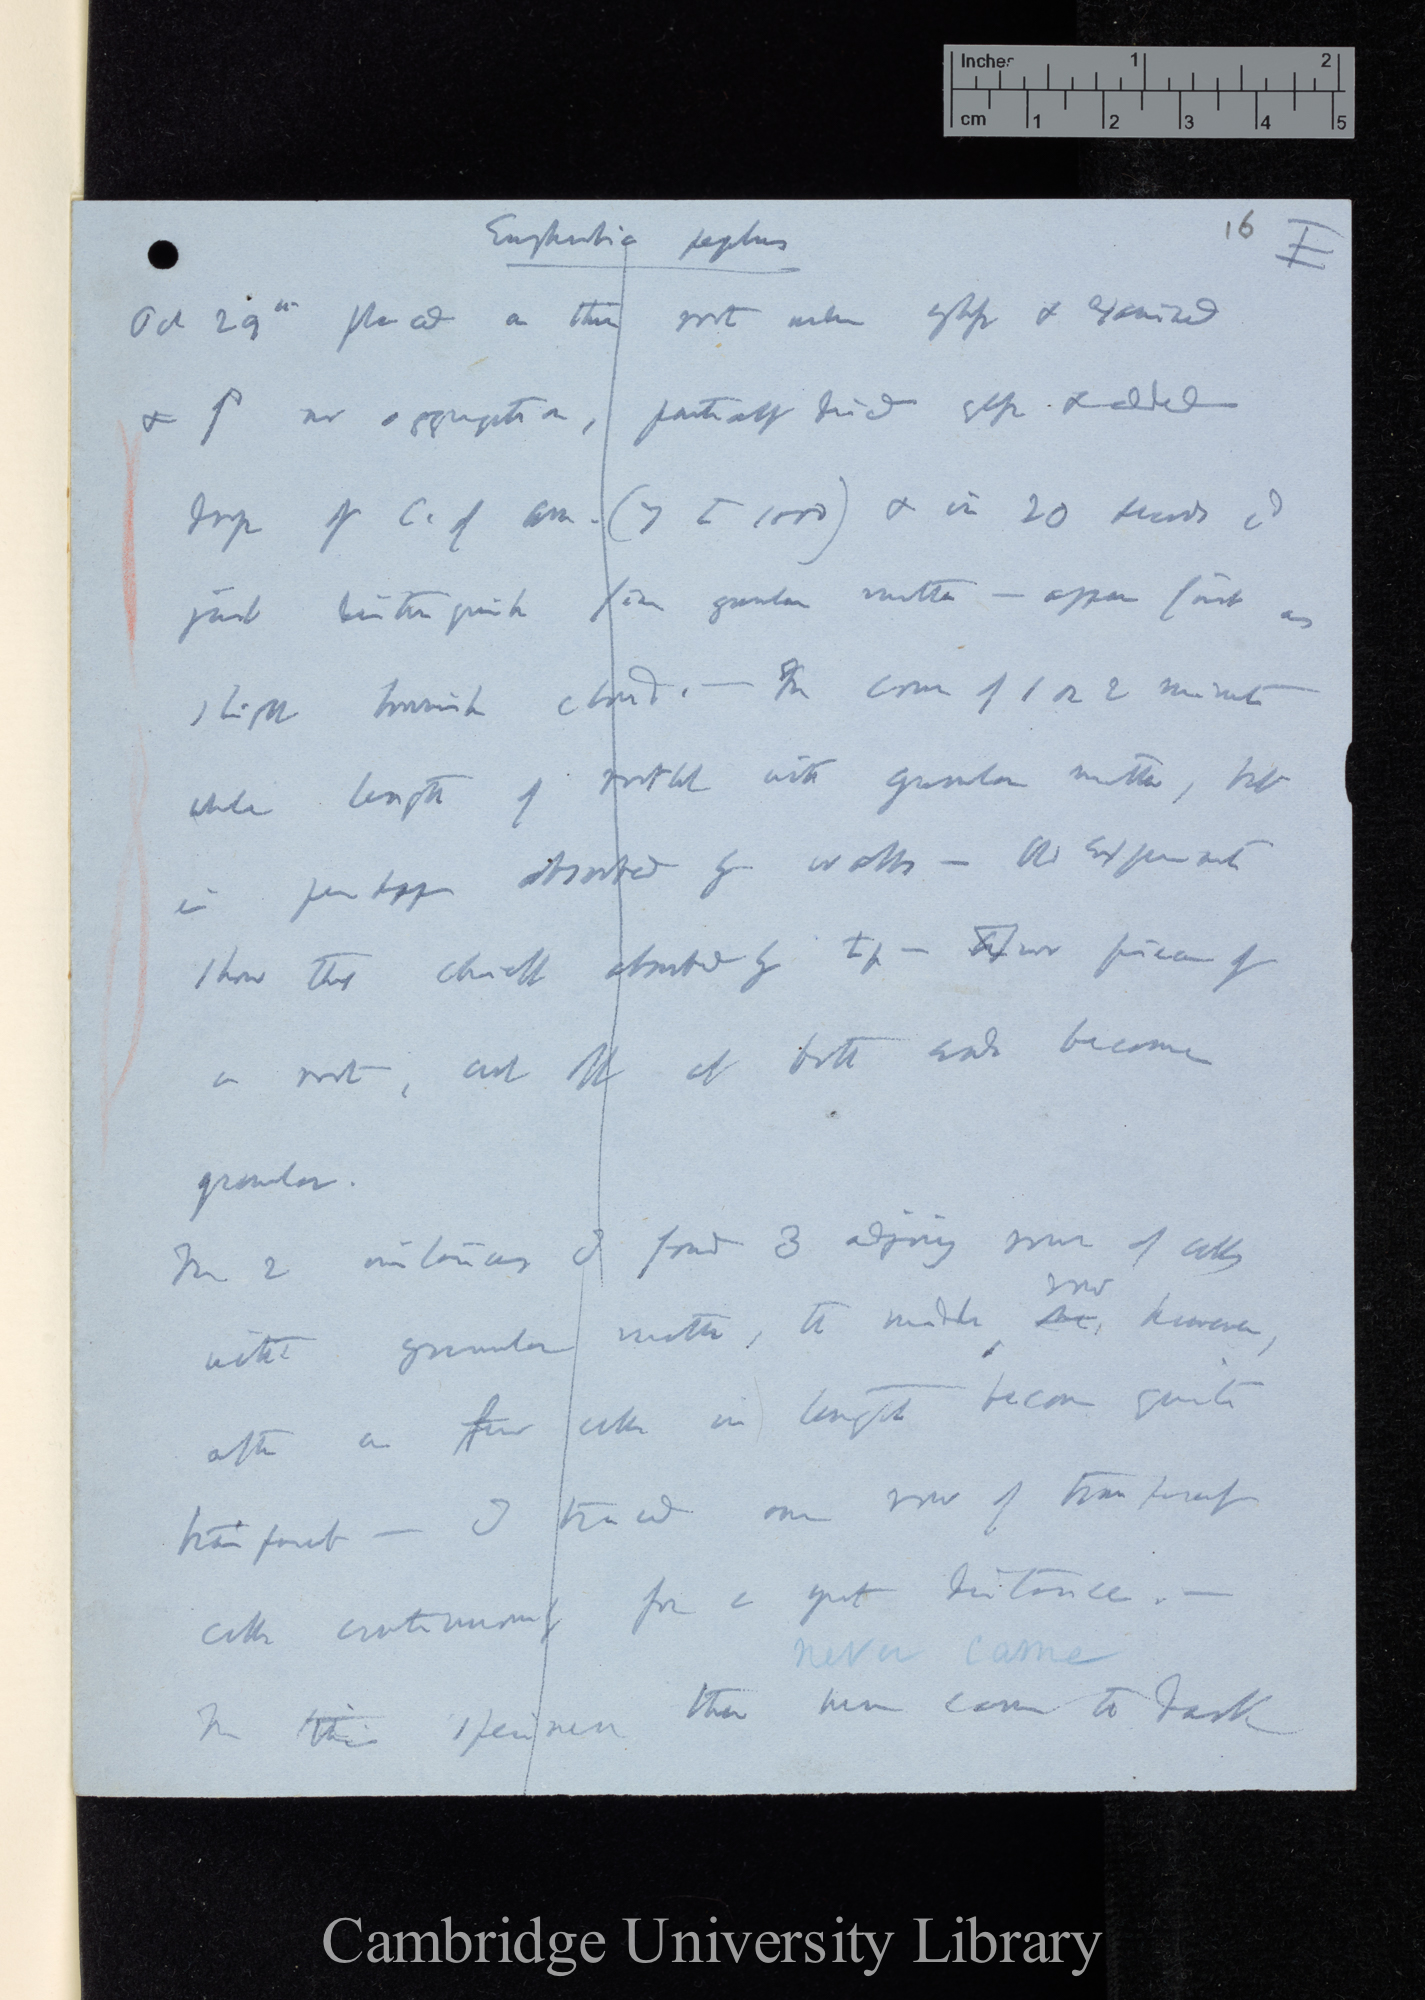 Inches 1 2
cm 1 2 3 4 5
16 II
Euphorbia peplus
Oct 29th placed a thin root under glass & examined
& no aggregation, partially dried glass & added
drop of C. of Am. (7 to 1000) & in 20 seconds cd
just distinguish fine granular matter — appear first as
slight brownish cloud. — In course of 1 or 2 minutes
whole length of with granular matter, but
is perhaps absorbed by walls — experiments
show that chiefly absorbed by tip — for pieces of
a root, cut off at both ends become
granular.
In 2 instances I found 3 adjoining rows of cells
with granular matter, the middle row, however,
after a few cells in length become quite
transparent — I traced one row of transparent
cells continuously for a great distance. —
never came
In this specimen there were come to dark
Cambridge University Library